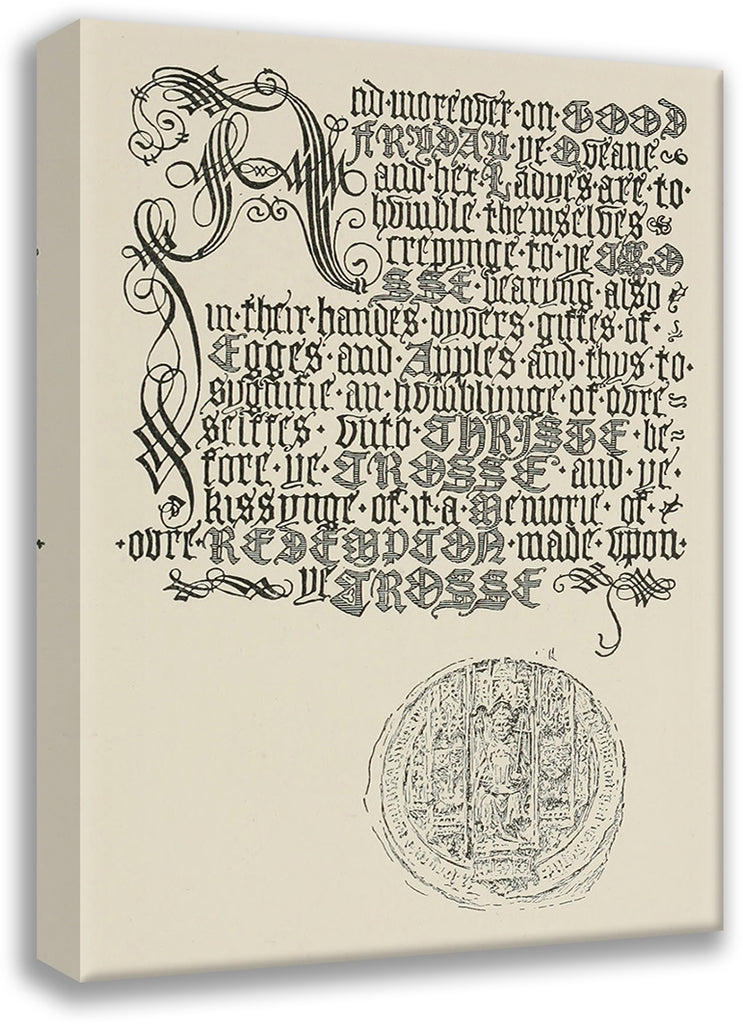 And·moreover·on·GOOD
FRYDAY·ye·Qveane
and·her·Ladyes·are·to·
hvmble·themselves
crepynge·to·ye CRO
SSE·bearyng·also
in·their·handes·dyvers·giftes·of·
Egges·and·Apples·and·thys·to·
sygnifie·an·hvmblynge·of·ovre
selffes·vnto·CHRISTE·be=
fore·ye·CROSSE·and·ye·
kissynge·of·it·a·Memorie·of·
·ovre·REDEMPCION·made·vpon·
ye CROSSE